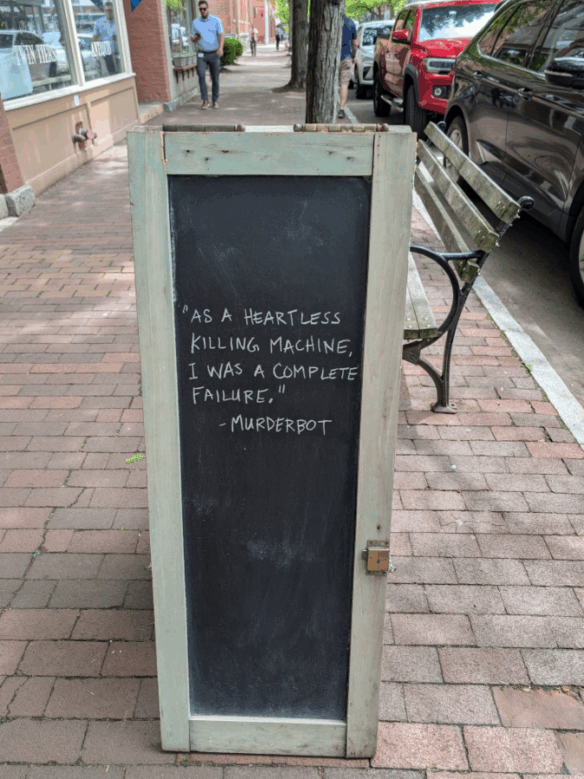 "AS A HEARTLESS
KILLING MACHINE,
I WAS A COMPLETE
FAILURE."
- MURDERBOT